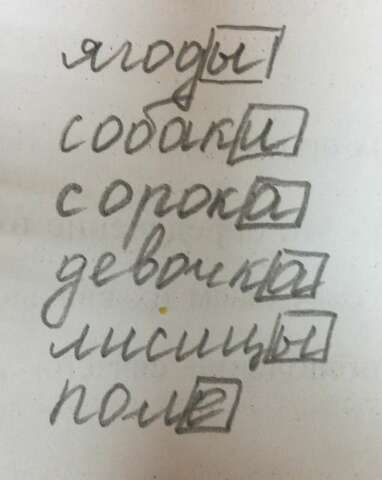 ягоды
собаки
сорока
девочка
лисицы
поле